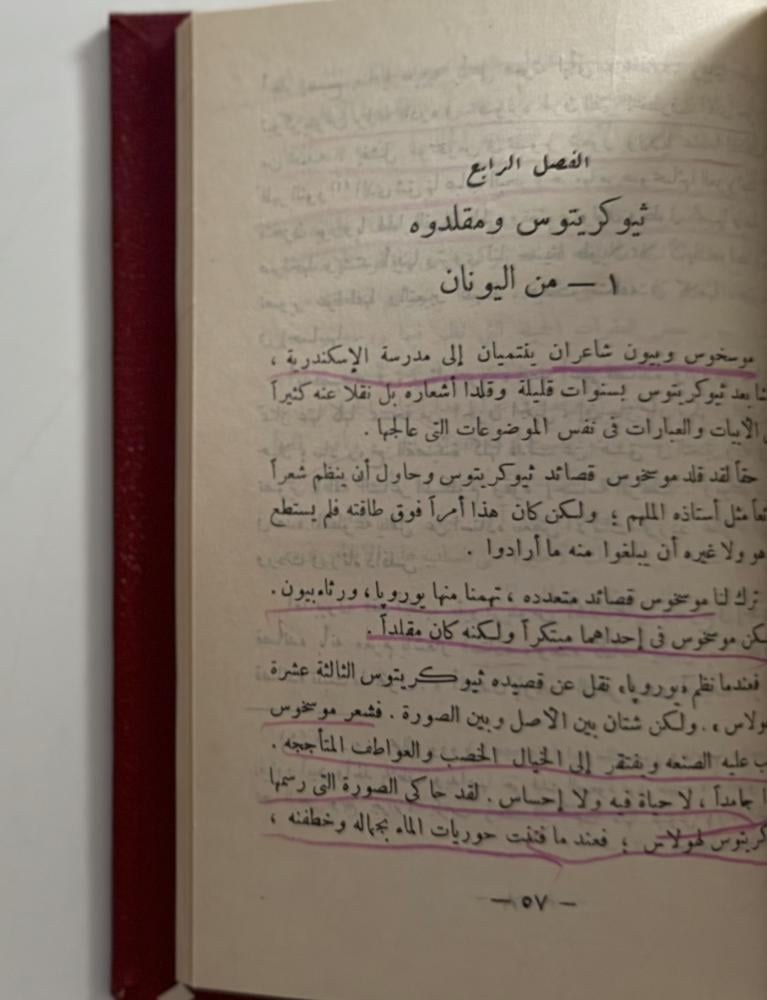 الفصل الرابع
ثيوكريتوس ومقلدوه
١ — من اليونان
موسخوس وبيون شاعران ينتميان إلى مدرسة الإسكندرية ،
بعد ثيوكريتوس بسنوات قليلة وقلدا أشعاره بل نقلا عنه كثيراً
الأبيات والعبارات فى نفس الموضوعات التى عالجها .
حقاً لقد قلد موسخوس قصائد ثيوكريتوس وحاول أن ينظم شعراً
مثل أستاذه الملهم ؛ ولكن كان هذا أمراً فوق طاقته فلم يستطع
هو ولا غيره أن يبلغوا منه ما أرادوا .
ترك لنا موسخوس قصائد متعدده ، تهمنا منها يوروپا ، ورثاء بيون .
موسخوس فى إحداهما مبتكراً ولكنه كان مقلداً .
فعندما نظم «يوروپا» نقل عن قصيده ثيوكريتوس الثالثة عشرة
ولكن شتان بين الأصل وبين الصورة . فشعر موسخوس
عليه الصنعه ويفتقر إلى الخيال الخصب والعواطف المتأججه .
جامداً ، لا حياة فيه ولا إحساس . لقد حاكى الصورة التى رسمها
لهولاس ؛ فعند ما فتنت حوريات الماء بجماله وخطفنه ،
— ٥٧ —